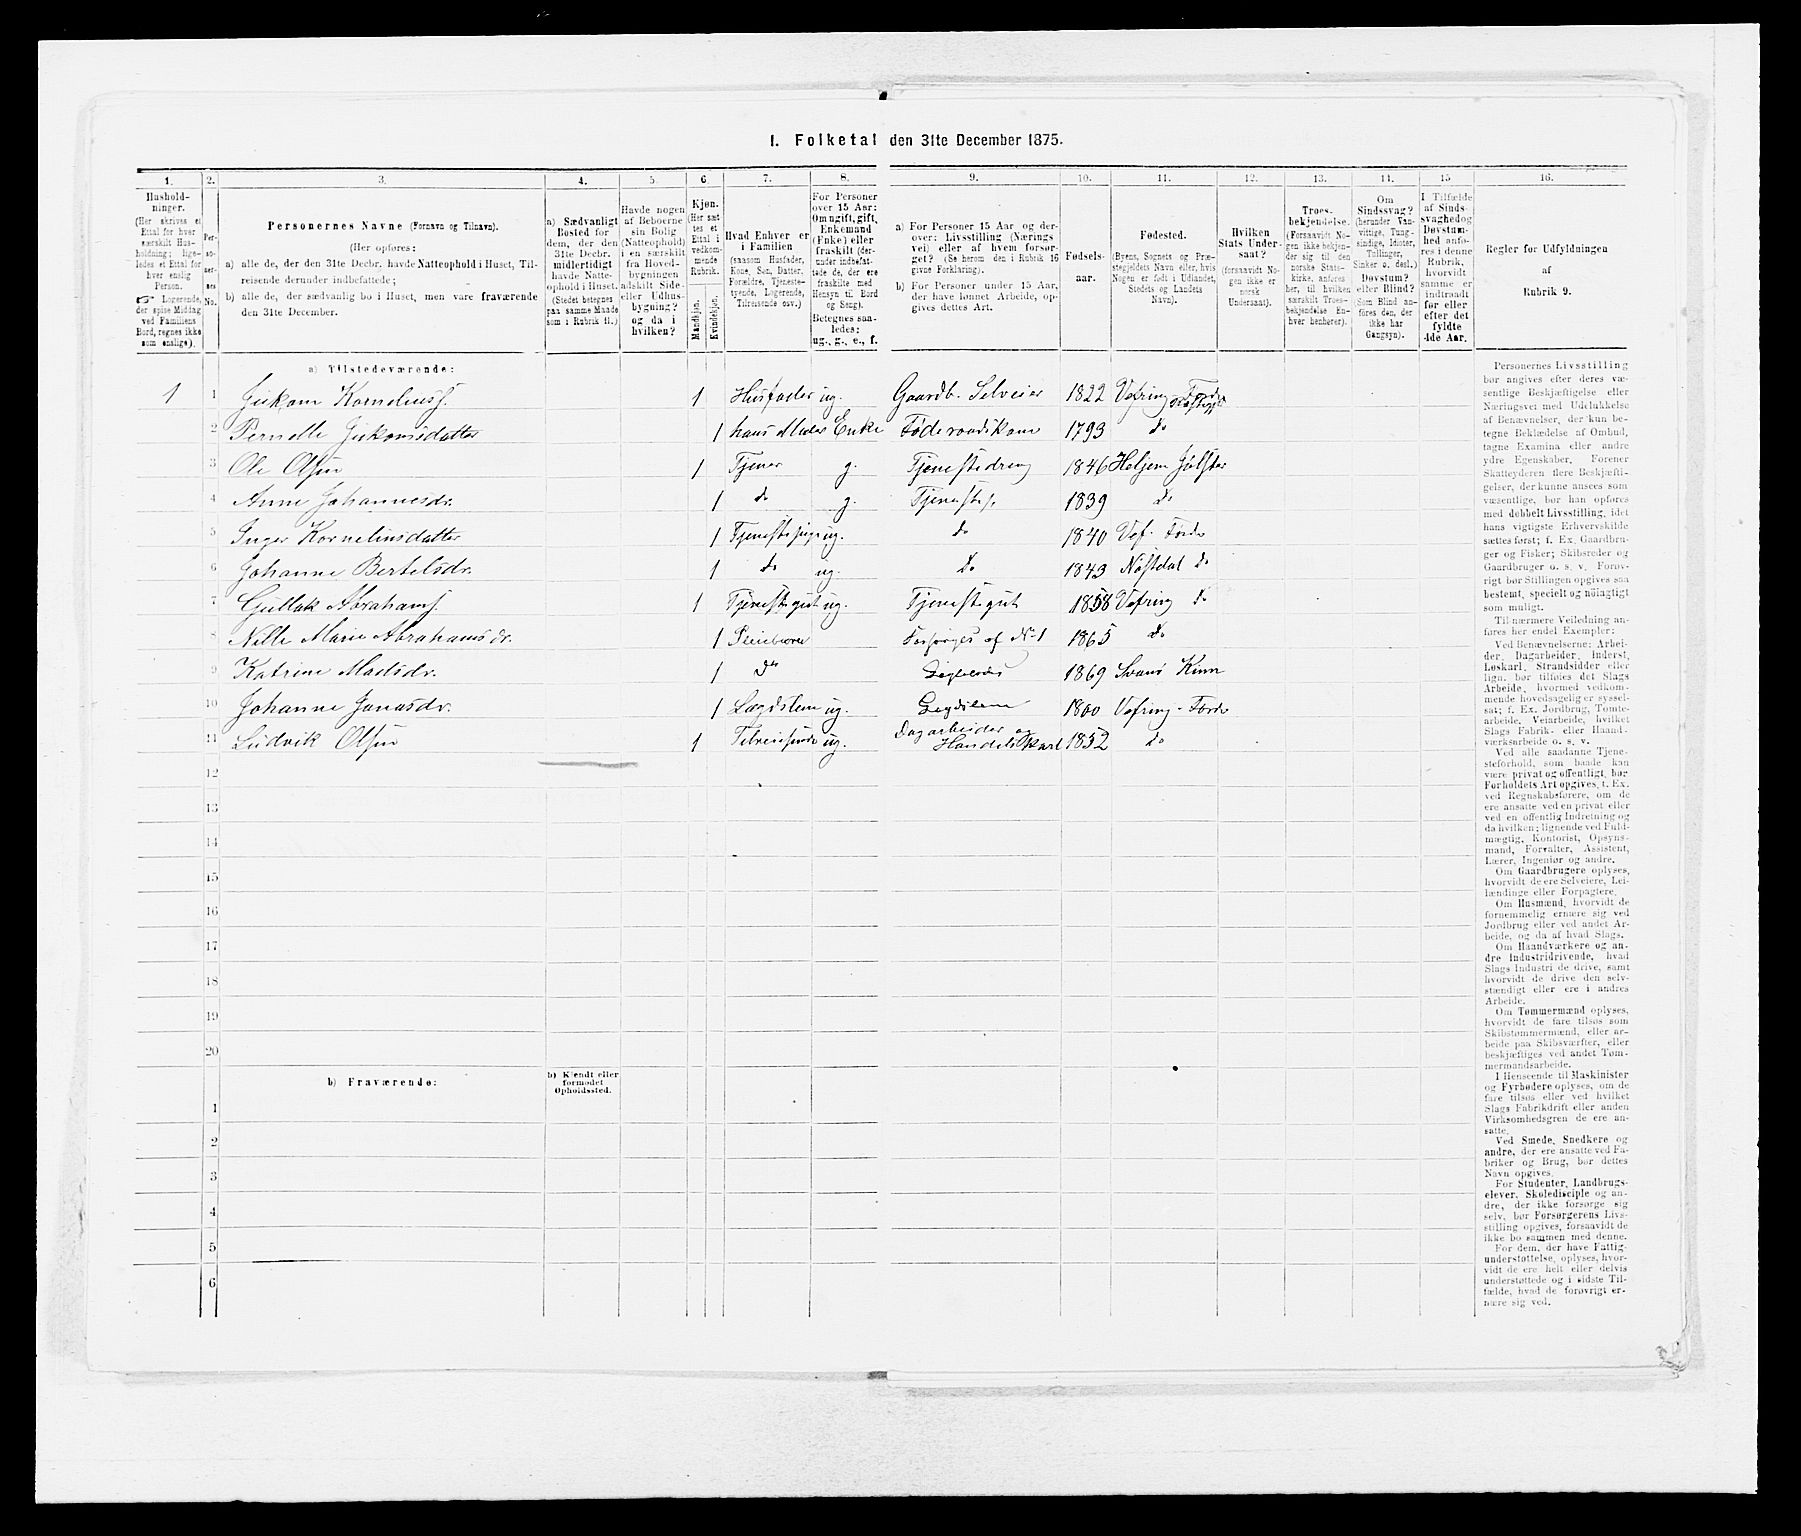 I. Folketal den 31te December 1875.
1. 2. 3. 4. 5. 6. 7. 8. 9. 10. 11. 12. 13. 14. 15 16.
Hushold-
ninger.
(Her skrives et
Ettal for hver
særskilt Hus-
holdning; lige-
ledes et Ettal for
hver enslig
Person.
Logerende,
der spise Middag
ved Familiens
Bord, regnes ikke
som enslige).
Per-
so-
ner-
nes
No.
Personernes Navne (Fornavn og Tilnavn).
(Her opføres:
a) alle de, der den 31te Decbr. havde Natteophold i Huset, Til-
reisende derunder indbefattede;
b) alle de, der sædvanlig bo i Huset, men vare fraværende
den 31te December.
a) Sædvanligt
Bosted for
dem, der den
31te Decbr.
midlertidigt
havde Natte-
ophold i Huset.
(Stedet betegnes
paa samme Maade
som i Rubrik 11.)
Havde nogen
af Beboerne
sin Bolig
(Natteophold)
i en særskilt
fra Hoved-
bygningen
adskilt Side-
eller Udhus-
bygning?
og da i
hvilken?
Kjøn.
(Her sæt-
tes et
Ettal i
vedkom-
mende
Rubrik.
Mandkjøn.
Kvindekjøn.
Hvad Enhver er
i Familien
(saasom Husfader,
Kone, Søn, Datter,
Forældre, Tjeneste-
tyende, Logerende,
Tilreisende osv.)
For Personer
over 15 Aar:
Om ugift, gift,
Enkemand
(Enke) eller
fraskilt (der-
under indbefat-
tede de, der ere
fraskilte med
Hensyn til Bord
og Seng).
Betegnes saa-
ledes:
ug., g., e., f.
a) For Personer 15 Aar og der-
over: Livsstilling (Nærings-
vei) eller af hvem forsør-
get? (Se herom den i Rubrik 16
givne Forklaring).
b) For Personer under 15 Aar,
der have lønnet Arbeide, op-
gives dettes Art.
Fødsels-
aar.
Fødested.
(Byens, Sognets og Præ-
stegjeldets Navn eller, hvis
Nogen er født i Udlandet,
Stedets og Landets
Navn).
Hvilken
Stats Under-
saat?
(forsaavidt No-
gen ikke er
norsk
Undersaat).
Troes-
bekjendelse.
(Forsaavidt No-
gen ikke bekjen-
der sig til den
norske Stats-
kirke, anføres
her, til hvilken
særskilt Troes-
bekjendelse En-
hver henhører).
Om
Sindssvag?
(herunder Van-
vittige, Tung-
sindige, Idioter,
Tullinger,
Sinker o. desl.)
Døvstum?
eller Blind?
(Som Blind an-
føres den, der
ikke har
Gangsyn).
I Tilfælde
af Sinds-
svaghed og
Døvstum-
hed anfø-
res i denne
Rubrik,
hvorvidt
samme er
indtraadt
før eller
efter det
fyldte
4de Aar.
Regler for Udfyldningen
af
Rubrik 9.
a) Tilstedeværende:
1 1 Jukam Korneliuss. 1 Husfader ug. Gaardb. Selveier 1822 Vefring Førde
2 Pernelle Jukamsdatter 1 hans Moder Enke Føderaadskone 1793 do
3 Ole Olsen 1 Tjener g. Tjenestedreng 1846 Heljem Jølster
4 Anne Johannesdr. 1 do g. 1839 do
5 Inger Korneliusdatter 1 Tjenestepige ug. do 1840 Vef. Førde
6 Johanne Bertelsdr. 1 do ug. do 1843 Nøstdal do
7 Gullak Abrahams. 1 Tjenestegut ug. Tjenestegut 1858 Vefring do
8 Nille Marie Abrahamsdr. 1 Pleiebarn Forsørges af No 1 1865 do
9 Katrine Madsdr. 1 do 1869 Svanø Kinn
10 Johanne Jonasdr. 1 Lægdslem ug. Legdslem 1800 Vefring - Førde
11 Ludvik Olsen 1 Tilreisende ug. Dagarbeider og
Handelskarl 1852 do
12
13
14
15
16
17
18
19
20
b) Fraværende:
b) Kjendt eller
formodet
Opholdssted.
1
2
3
4
5
6
Personernes Livsstilling
bør angives efter deres væ-
sentlige Beskjæftigelse eller
Næringsvei med Udelukkelse
af Benævnelser, der kun be-
tegne Beklædelse af Ombud,
tagne Examina eller andre
ydre Egenskaber. Forener
Skatteyderen flere Beskjæfti-
gelser, der kunne ansees som
væsentlige, bør han opføres
med dobbelt Livsstilling, idet
hans vigtigste Erhvervskilde
sættes først; f. Ex. Gaardbru-
ger og Fisker; Skibsreder og
Gaardbruger o. s. v. Forøv-
rigt bør Stillingen opgives saa
bestemt, specielt og nøiagtigt
som muligt.
Til nærmere Veiledning an-
føres her endel Exempler:
Ved Benævnelserne: Arbei-
der, Dagarbeider, Inderst,
Løskarl, Strandsidder eller
lign. bør tilføies det Slags
Arbeide, hvormed vedkom-
mende hovedsagelig er syssel-
sat; f. Ex. Jordbrug, Tomte-
arbeide, Veiarbeide, hvilket
Slags Fabrik- eller Haand-
værksarbeide o. s. v.
Ved alle saadanne Tjene-
steforhold, som baade kan
være privat og offentligt, bør
Forholdets Art opgives, t. Ex.
ved Regnskabsførere, om de
ere ansatte ved en privat eller
ved en offentlig Indretning og
da hvilken; lignende ved Fuld-
mægtig, Kontorist, Opsyns-
mand, Forvalter, Assistent,
Lærer, Ingeniør og andre.
Om Gaardbrugere oplyses,
hvorvidt de ere Selveiere, Lei-
lændinge eller Forpagtere.
Om Husmænd, hvorvidt de
fornemmelig ernære sig ved
Jordbrug eller ved andet Ar-
beide, og da af hvad Slags.
Om Haandværkere og an-
dre Industridrivende, hvad
Slags Industri de drive, samt
hvorvidt de drive den selv-
stændigt eller ere i andres
Arbeide.
Om Tømmermænd oplyses,
hvorvidt de fare tilsøs som
Skibstømmermænd, eller ar-
beide paa Skibsværfter, eller
beskjæftiges ved andet Tøm-
mermandsarbeide.
I Henseende til Maskinister
og Fyrbødere oplyses, om de
fare tilsøs eller ved hvilket
Slags Fabrikdrift eller anden
Virksomhedsgren de ere an-
satte.
Ved Smede, Snedkere og
andre, der ere ansatte ved Fa-
briker og Brug, bør dettes
Navn opgives.
For Studenter, Landbrugs-
elever, Skoledisciple og an-
dre, der ikke forsørge sig
selv, bør Forsørgerens Livs-
stilling opgives, forsaavidt de
ikke bo sammen med denne.
For dem, der have Fattig-
understøttelse, oplyses, hvor-
vidt de ere helt eller delvis
understøttede og i sidste Til-
fælde, hvad de forøvrigt er-
nære sig ved.